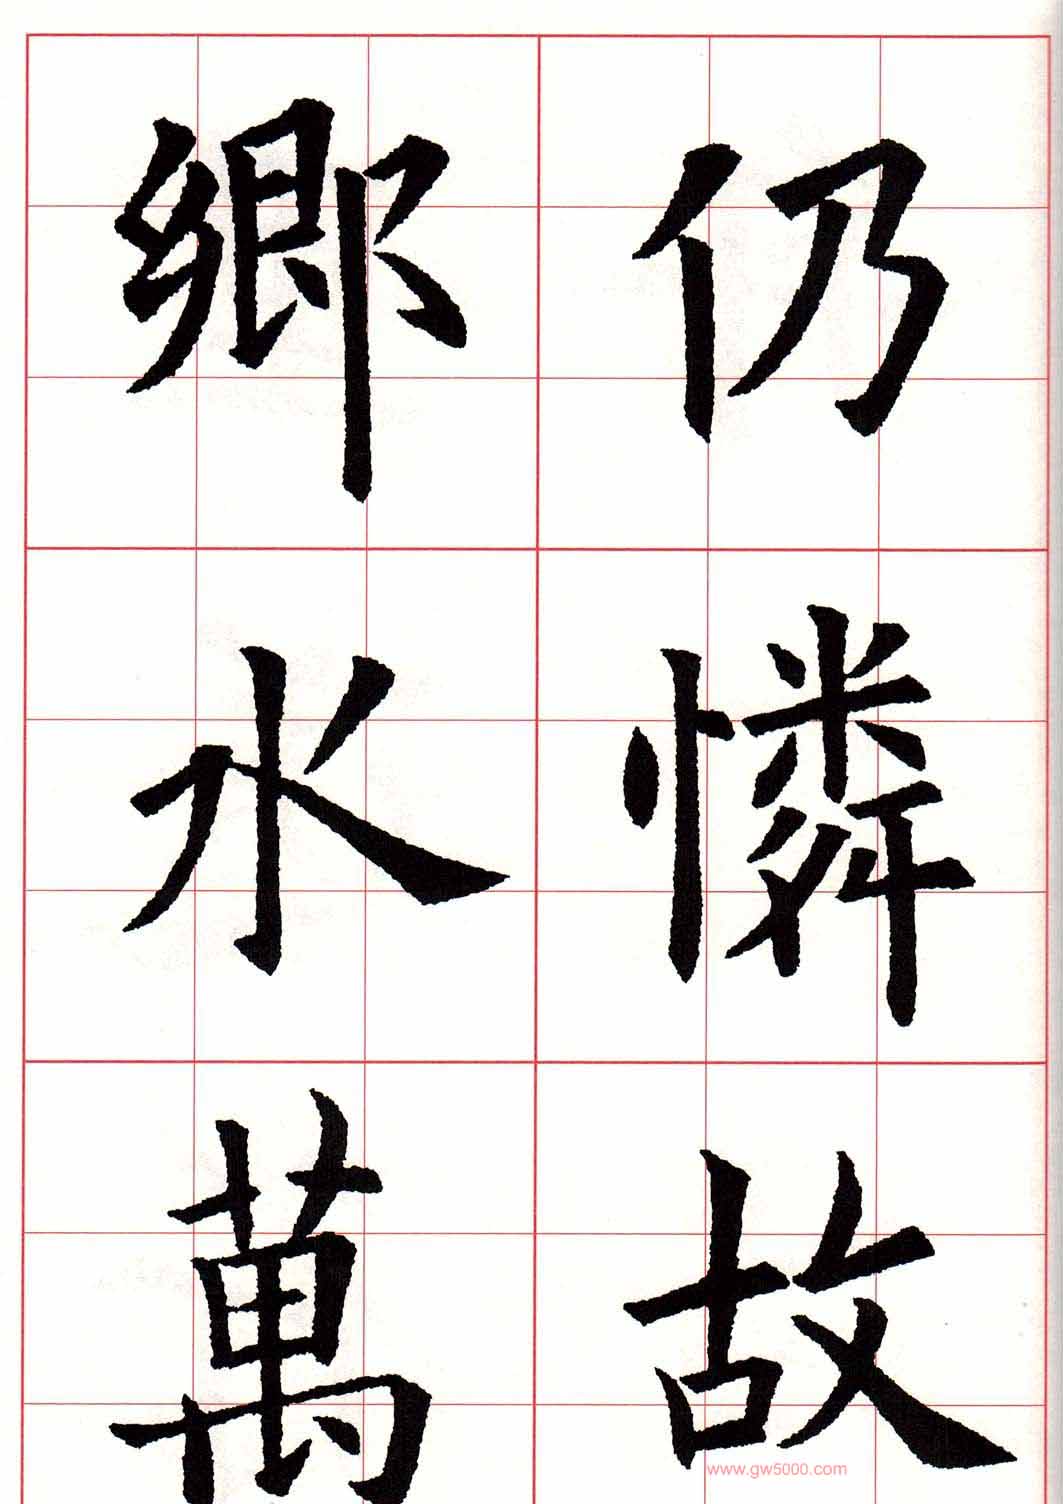 仍憐故
鄉水萬
www.gw5000.com